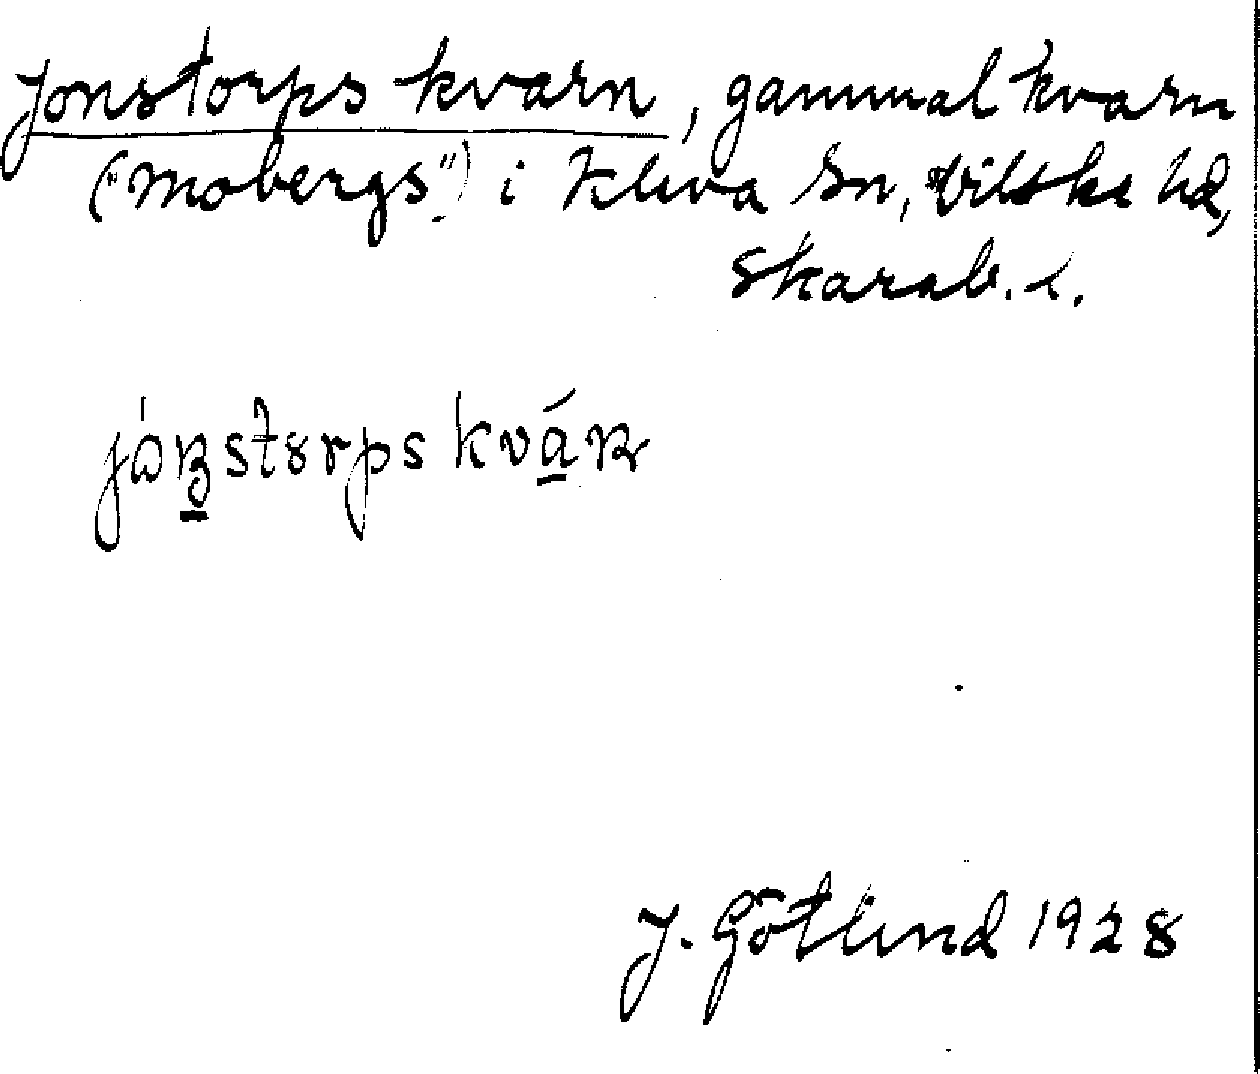 Jonstorps kvarn, gammal kvarn
("Mobergs") i Kleva sn, Vilske hd,
Skarab. l.
J. Götlind 1928